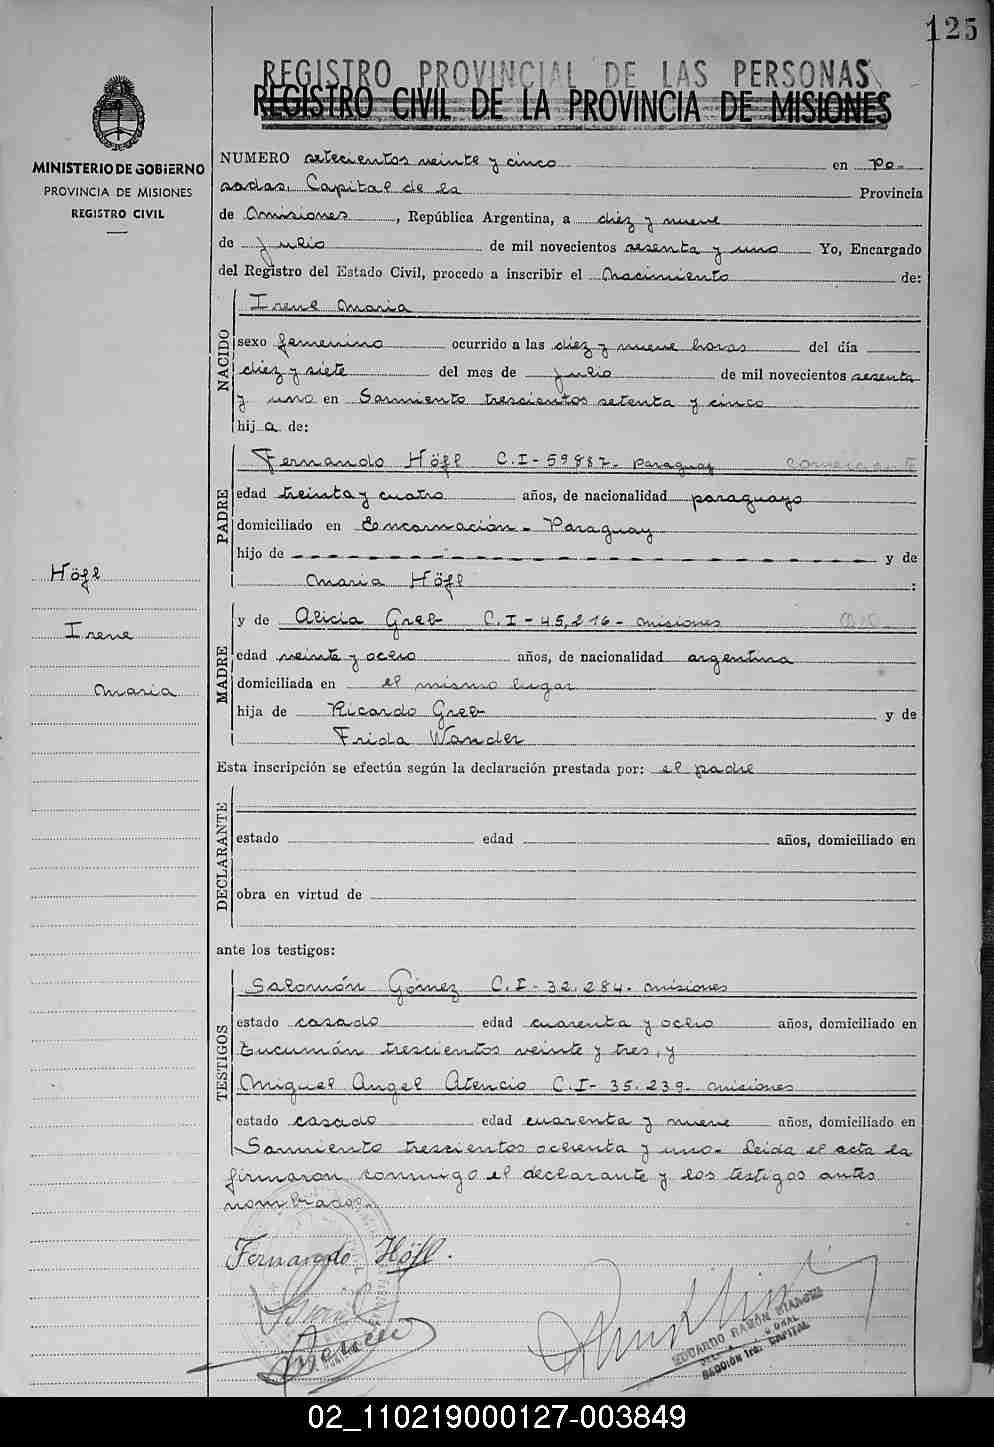 125
REGISTRO PROVINCIAL DE LAS PERSONAS
REGISTRO CIVIL DE LA PROVINCIA DE MISIONES
MINISTERIO DE GOBIERNO
PROVINCIA DE MISIONES
REGISTRO CIVIL
NUMERO setecientos veinte y cinco en Po-
sadas, Capital de la Provincia
de Misiones, República Argentina, a diez y nueve
de Julio de mil novecientos sesenta y uno Yo, Encargado
del Registro del Estado Civil, procedo a inscribir el Nacimiento de:
NACIDO
Irene Maria
sexo femenino ocurrido a las diez y nueve horas del día
diez y siete del mes de Julio de mil novecientos sesenta
y uno en Sarmiento trescientos setenta y cinco
hija de:
PADRE
Fernando Höfl C.I-59887- Paraguay comerciante
edad treinta y cuatro años, de nacionalidad paraguayo
domiciliado en Encarnación - Paraguay
hijo de - - - - - - - - - y de
Maria Höfl :
Höfl
Irene
Maria
MADRE
y de Alicia Greb C.I-45,216- Misiones
edad veinte y ocho años, de nacionalidad argentina
domiciliada en el mismo lugar
hija de Ricardo Greb y de
Frida Wander
Esta inscripción se efectúa según la declaración prestada por: el padre
DECLARANTE
estado edad años, domiciliado en
obra en virtud de
ante los testigos:
TESTIGOS
Salomón Gómez C.I-32.284. Misiones
estado casado edad cuarenta y ocho años, domiciliado en
Tucumán trescientos veinte y tres, y
Miguel Angel Atencio C.I-35.239. Misiones
estado casado edad cuarenta y nueve años, domiciliado en
Sarmiento trescientos ochenta y uno. Leida el acta la
firmaron conmigo el declarante y los testigos antes
nombrados.
Fernando Höfl.
EDUARDO RAMÓN
SECCIÓN 1ra. CAPITAL
02_110219000127-003849